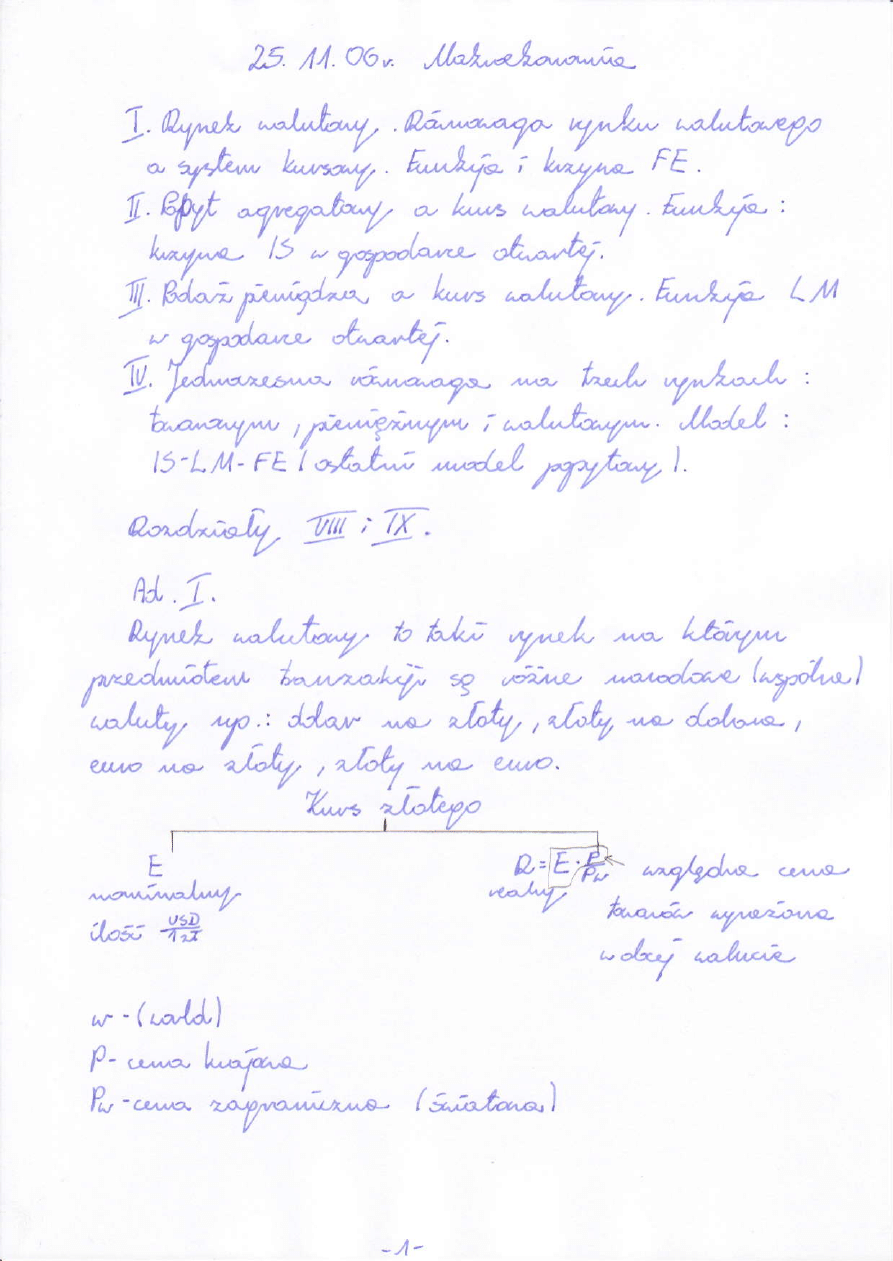 25. 11. 06 r. Makroekonomia
I. Rynek walutowy. Równowaga rynku walutowego
a system kursowy. Funkcja i krzywa FE.
II. Popyt agregatowy a kurs walutowy. Funkcja :
krzywa IS w gospodarce otwartej.
III. Podaż pieniądza a kurs walutowy. Funkcja LM
w gospodarce otwartej.
IV. Jednoczesna równowaga na trzech rynkach :
towarowym, pieniężnym i walutowym. Model :
IS-LM-FE (ostatni model popytowy).
Rozdziały VIII i IX.
Ad. I.
Rynek walutowy to taki rynek na którym
przedmiotem tranzakcji są różne narodowe (wspólne)
waluty np.: dolar na złoty, złoty na dolara,
euro na złoty, złoty na euro.
Kurs złotego
E
nominalny
ilość USD/1 zł
R = E · P/Pw
realny
względna cena
towarów wyrażona
w obcej walucie
w - (world)
P - cena krajowa
Pw - cena zagraniczna (światowa)
-1-